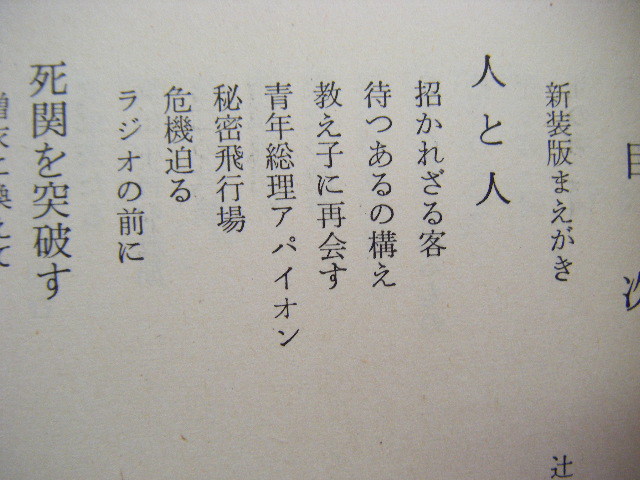 目次
新装版まえがき 辻
人と人
招かれざる客
待つあるの構え
教え子に再会す
青年総理アパイオン
秘密飛行場
危機迫る
ラジオの前に
死関を突破す
僧衣に換えて